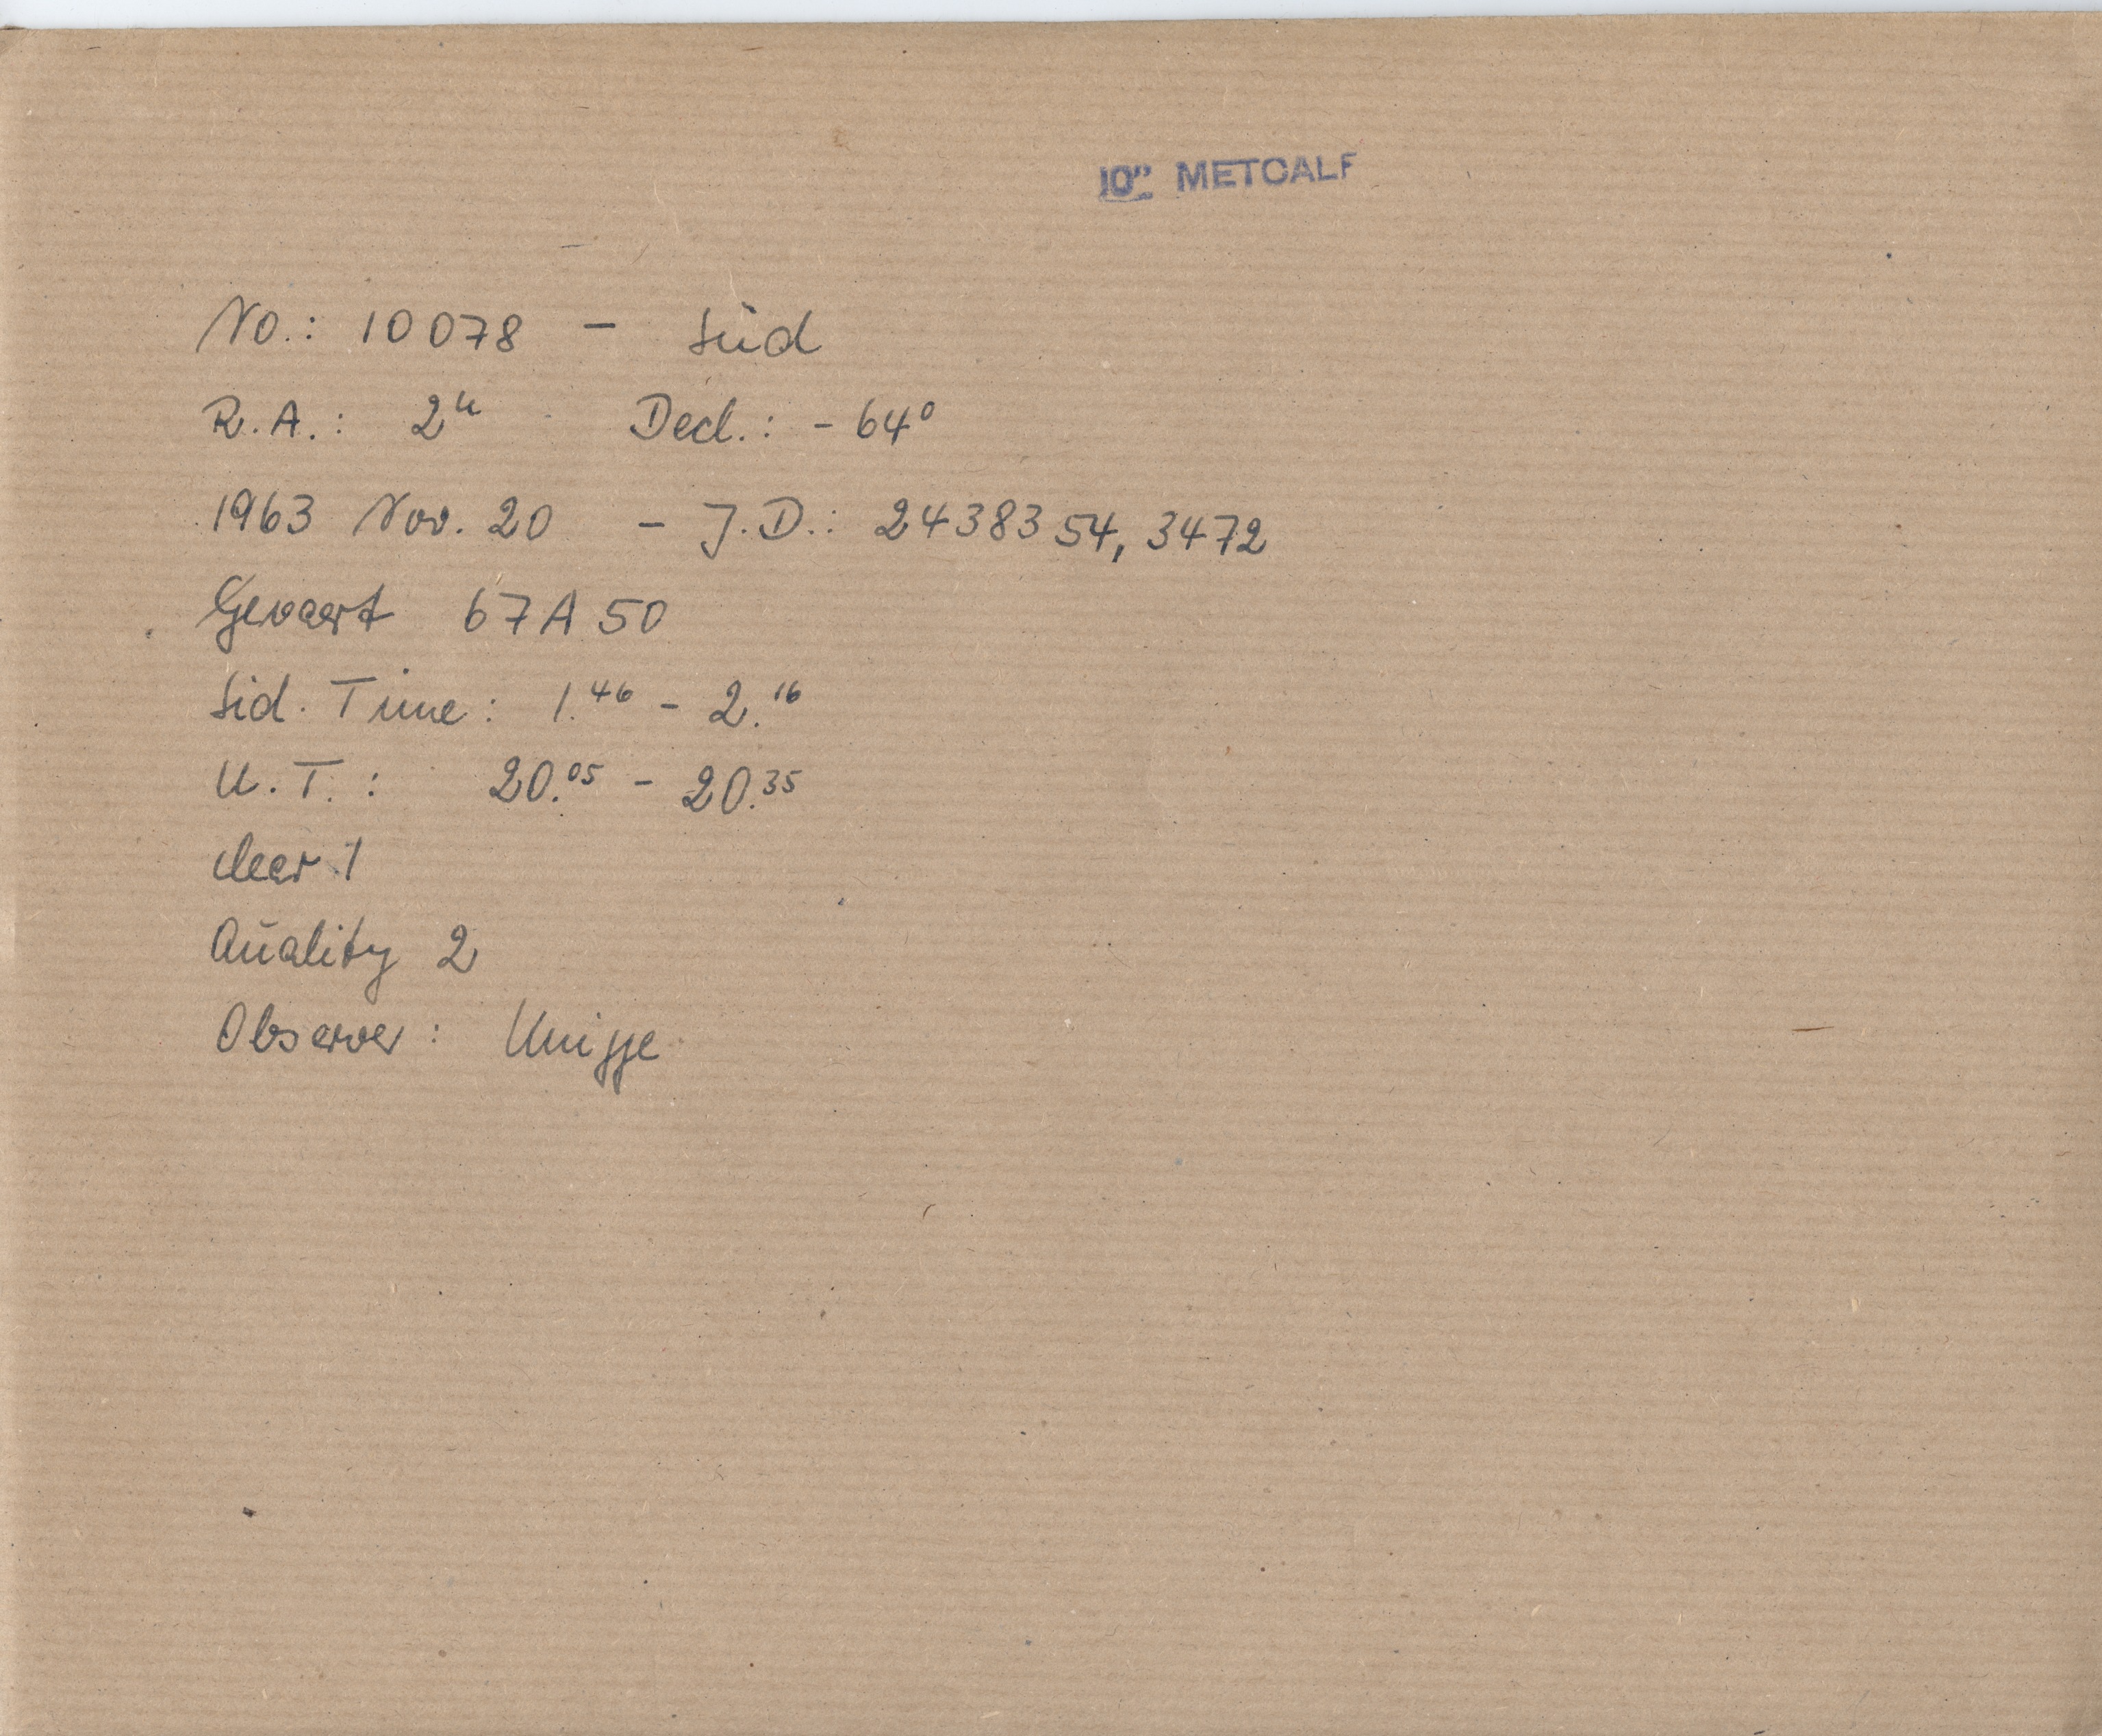 10" METCALF
No.: 10078 - Süd
R.A.: 2h Decl.: - 64°
1963 Nov. 20 - J.D.: 2438354,3472
Gevaert 67A50
Sid. Time: 1.46 - 2.16
U.T.: 20.05 - 20.35
clear 1
Quality 2
Observer: